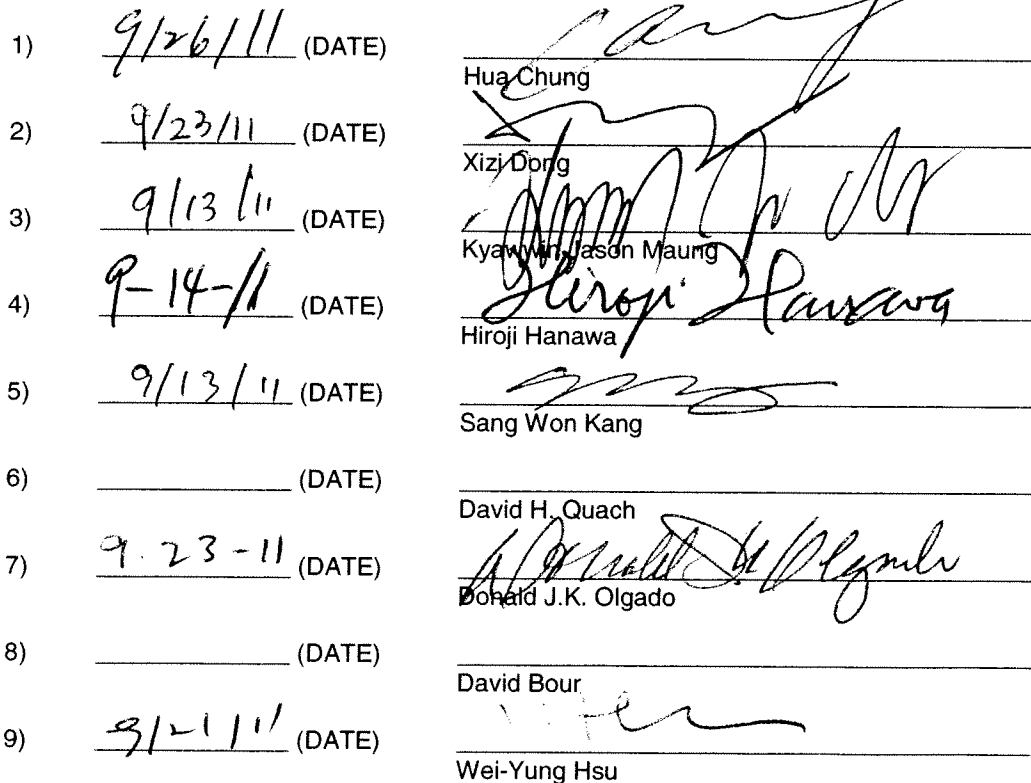 1) 9/26/11 (DATE)
Hua Chung
2) 9/23/11 (DATE)
Xizi Dong
3) 9/13/11 (DATE)
Kyawwin Jason Maung
4) 9-14-11 (DATE) Hiroji Hanawa
Hiroji Hanawa
5) 9/13/11 (DATE)
Sang Won Kang
6) (DATE)
David H. Quach
7) 9.23-11 (DATE) Donald J.K. Olgado
Donald J.K. Olgado
8) (DATE)
David Bour
9) 9/21/11 (DATE)
Wei-Yung Hsu